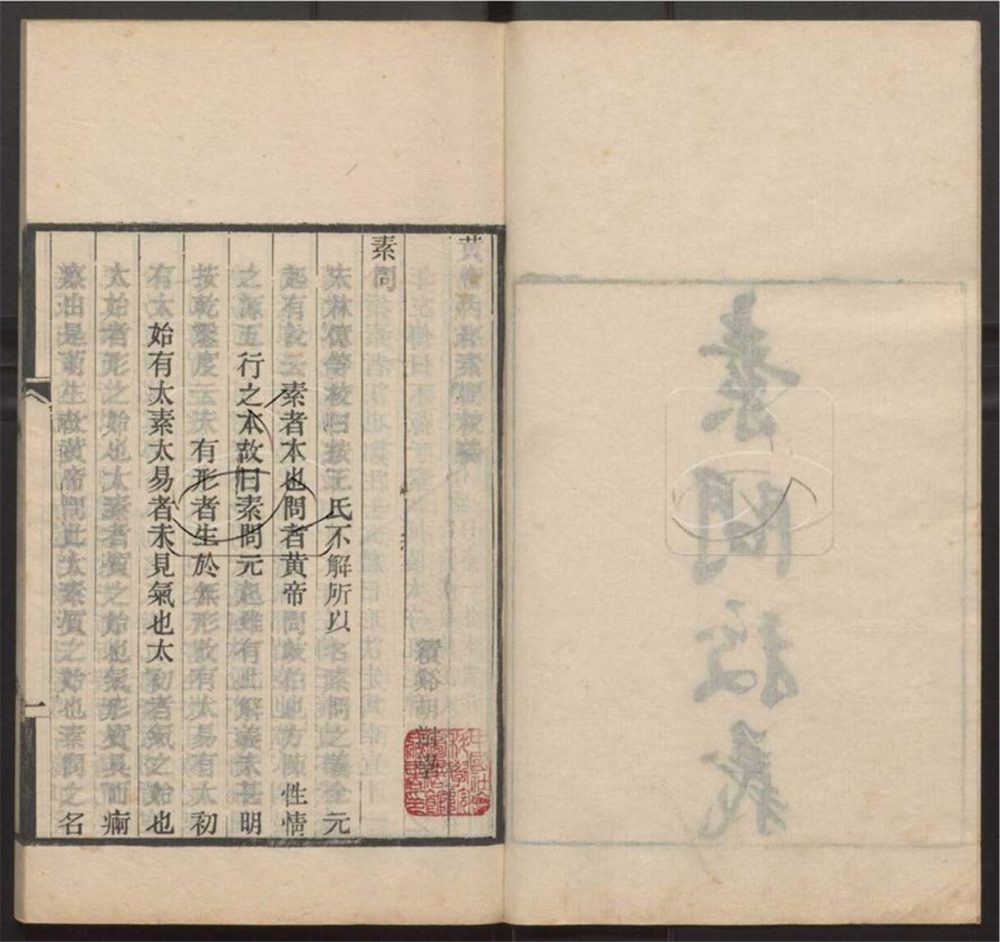 素問校義
黃帝內經素問校義
績谿胡澍學
素問
宋林億等校曰按王氏不解所以名素問之義全元
起有說云素者本也問者黃帝問岐伯也方陳性情
之源五行之本故曰素問元起雖有此解義未甚明
按乾鑿度云夫有形者生於無形故有太易有太初
有太始有太素太易者未見氣也太初者氣之始也
太始者形之始也太素者質之始也氣形質具而痾
瘵由是萌生故黃帝問此太素質之始也素問之名
一